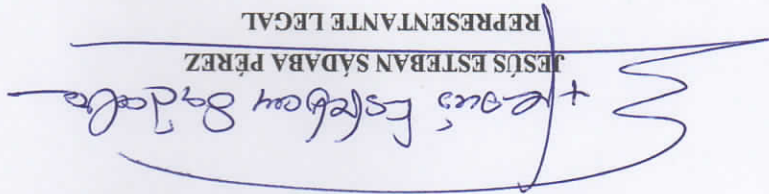 Jesús Esteban Sádaba
JESÚS ESTEBAN SÁDABA PÉREZ
REPRESENTANTE LEGAL